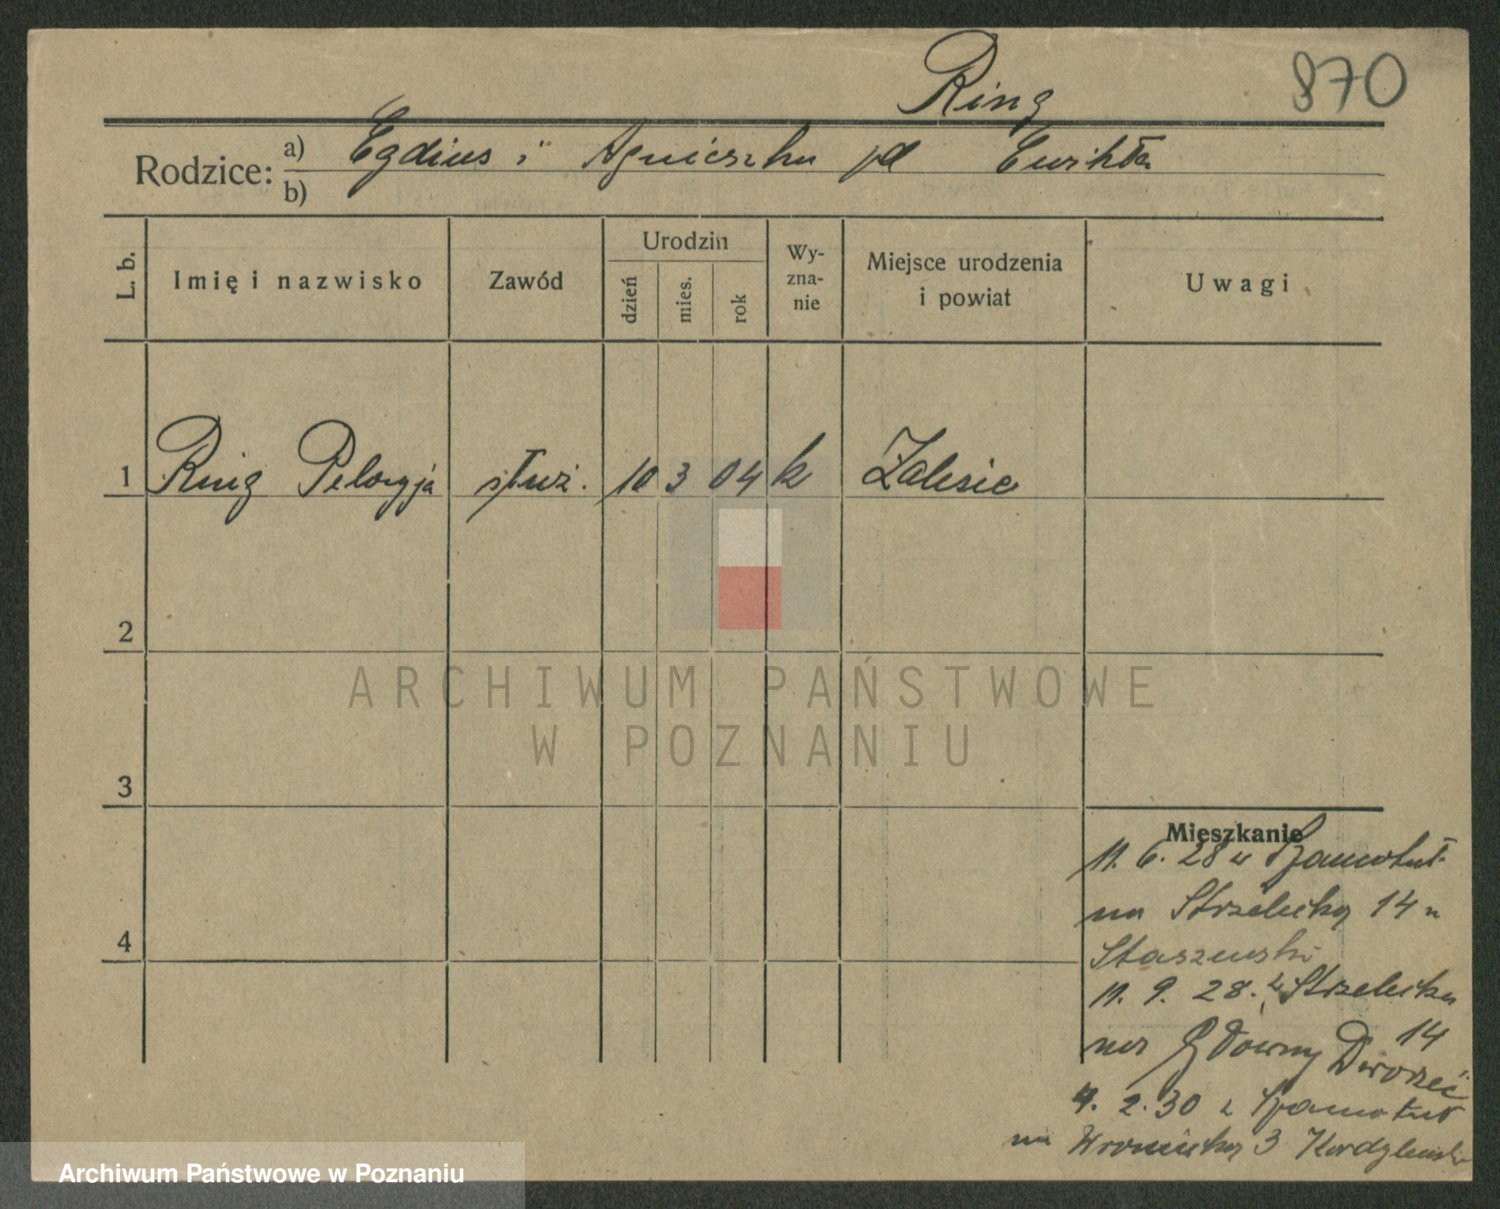 Ring 870
Rodzice: a) Egdius i Agnieszka pd
b)
L. b. Imię i nazwisko Zawód Urodzin dzień mies. rok Wy-zna-nie Miejsce urodzenia i powiat Uwagi
1 Ring Pelagja służ. 10 3 04 k Zalesie
2
3
4
Mieszkanie
11. 6. 28 z Szamotuł
na Strzelecką 14 u
Staszewski
11. 9. 28. z Strzelecka
14
na Główny Dworzec
4. 2. 30 z Szamotuł
na Wroniecką 3
ARCHIWUM PAŃSTWOWE
W POZNANIU
Archiwum Państwowe w Poznaniu